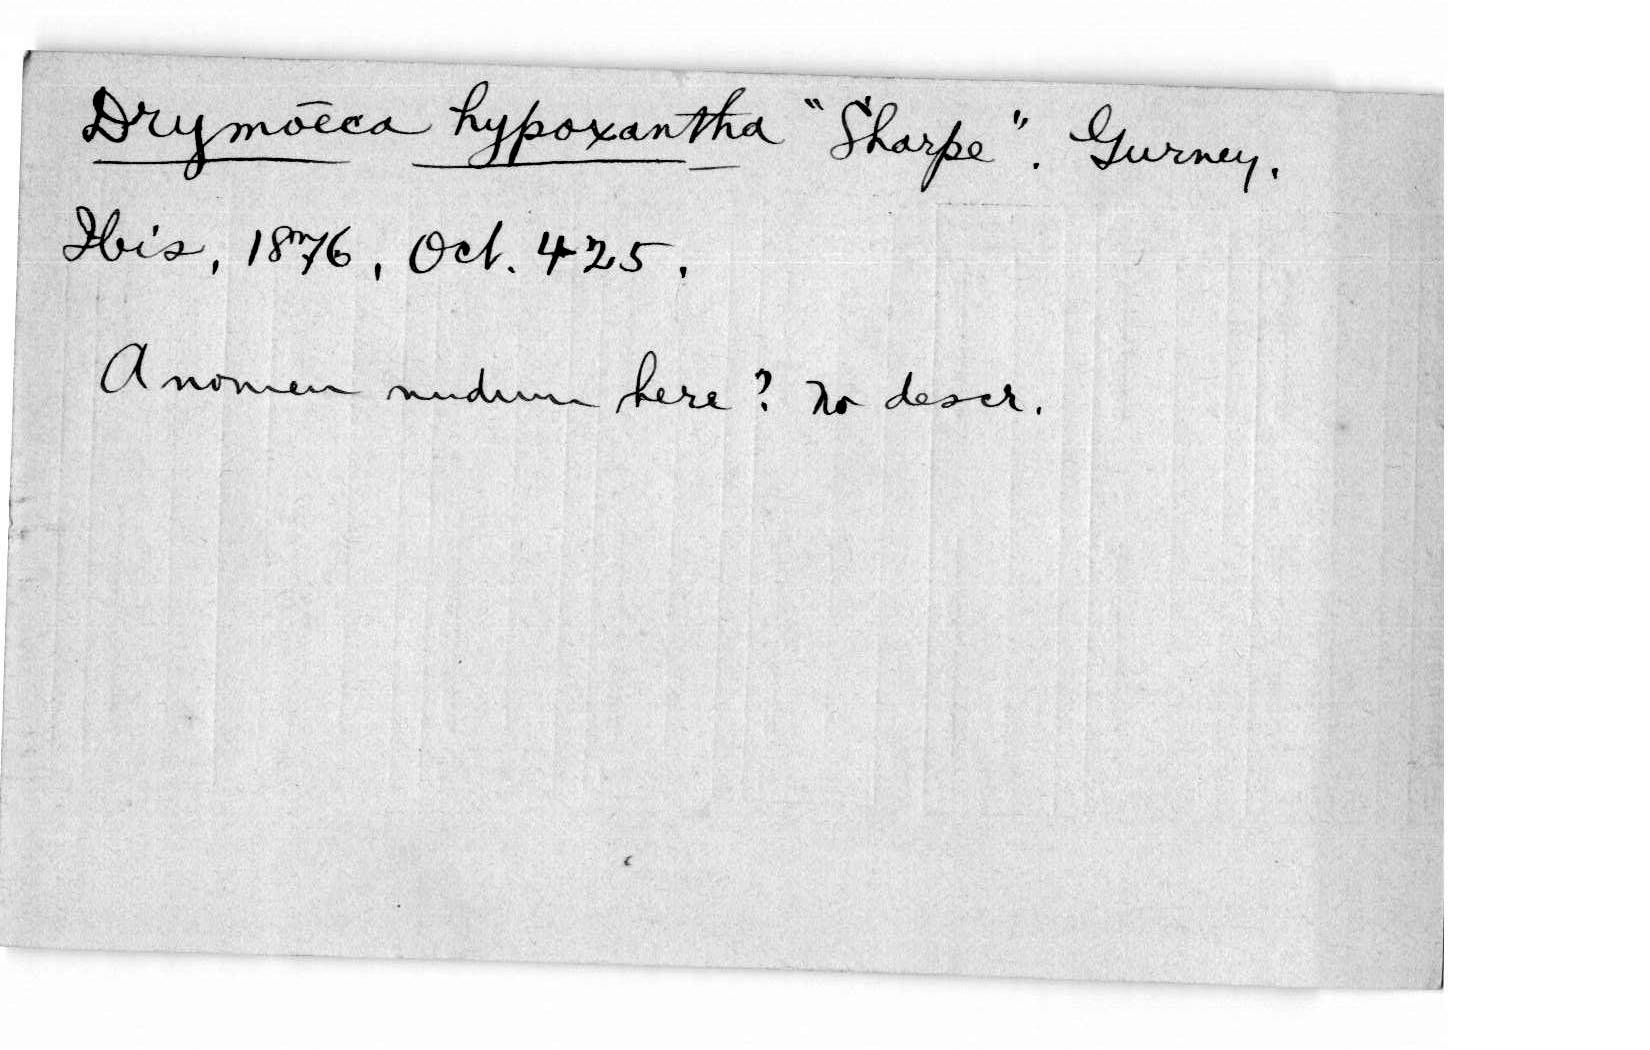 Drymōeca hypoxantha "Sharpe". Gurney.
Ibis, 1876, Oct. 425.
A nomen nudum here? No descr.